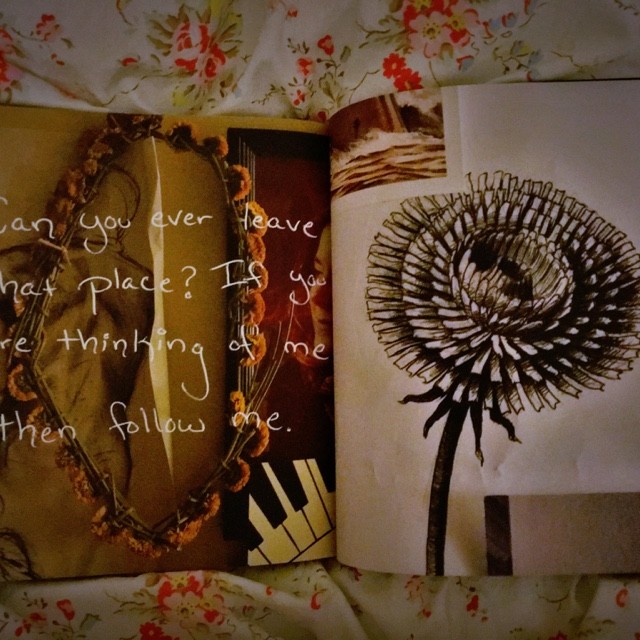 Can you ever leave
that place? If you
re thinking of me
then follow me.